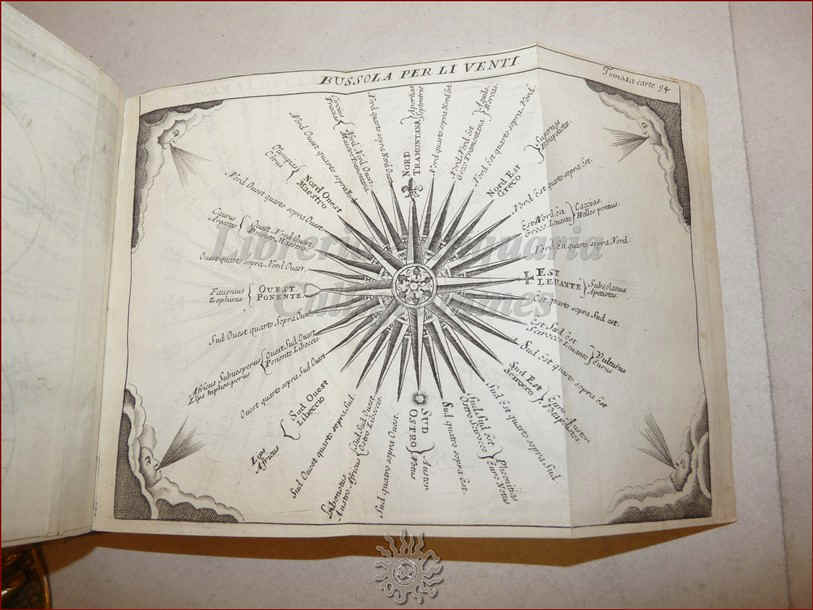 BUSSOLA PER LI VENTI
carte 94
NORD
TRAMONTANA
Nord quarto sopra Nord Est.
Nord Nord Est
Greco Tramontana
Nord Est quarto sopra Nord.
Nord Est
Greco
Nord Est quarto sopra Est.
Est Nord Est
Greco Levante
Cæcias
Helles pontus.
Nord Est quarto sopra Nord.
EST
LEVANTE
Subsolanus
Apeliotes.
Est quarto sopra Sud est.
Est Sud Est
Scirocco Levante
Vulturnus
Eurus
Sud Est quarto sopra Est
Sud Est
Scirocco
Euro Auster
Sud Est quarto sopra Sud.
Sud Sud Est
Ostro Scirocco
Phœnitias
Euro Notus
Sud quatro sopra Est.
SUD
OSTRO
Auster
Notus
Sud quatro sopra Ouest.
Sud Sud Ouest
Ostro Libeccio
Subnotus
Austro Africus
Sud Ouest quarto sopra Sud.
Sud Ouest
Libeccio
Lips
Africus
Ouest quarto sopra Sud Ouest
Ouest Sud Ouest
Ponente Libeccio
Africus Subuesperus
Sud Ouest quarto sopra Ouest
OUEST
PONENTE
Fauonius
Zephirus
Ouest quarto sopra Nord Ouest.
Ouest Nord Ouest
Ponente Maestro
Caurus
Argestes
Nord Ouest quarto sopra Ouest.
Nord Ouest
Maestro
Nord Ouest quarto sopra Nord
Nord Nord Ouest
Maestro Tramontana
Nord quarto sopra Nord Ouest
Libreria Antiquaria